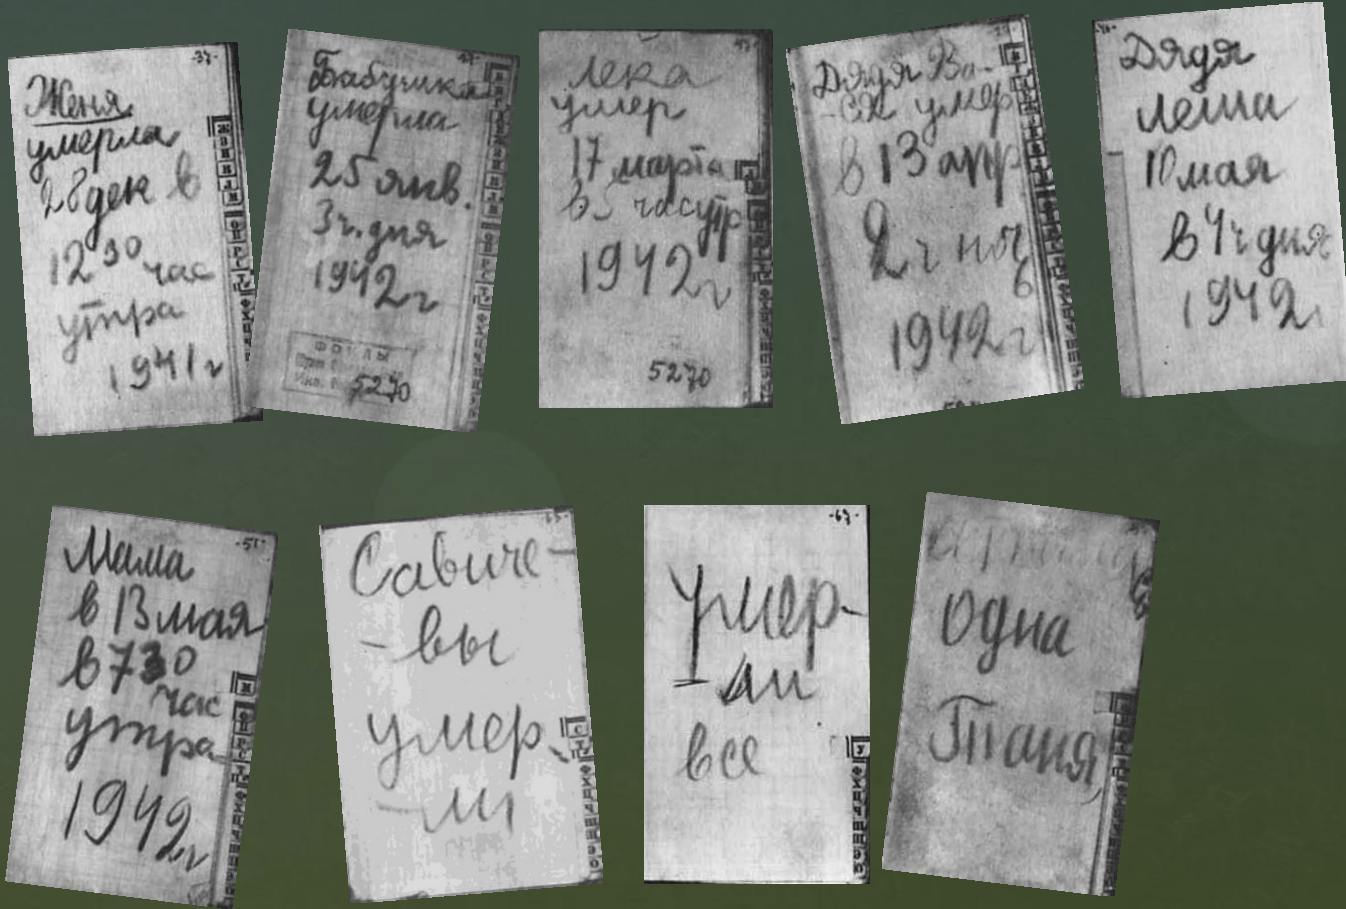 -37-
Женя
умерла
28 дек в
12 30 час
утра
1941 г
Бабушка
умерла
25 янв.
3 ч. дня
1942 г
5270
Лека
умер
17 марта
в 5 час утр
1942 г
5270
Дядя Ва-
-ся умер
в 13 апр
2 ч ноч
ь
1942 г
Дядя
Леша
10 мая
в 4 ч дня
1942 г
Мама
в 13 мая
в 7 30
час
утра
1942 г
Савиче-
-вы
умер
-ли
-67-
умер-
-ли
все
осталась
одна
Таня